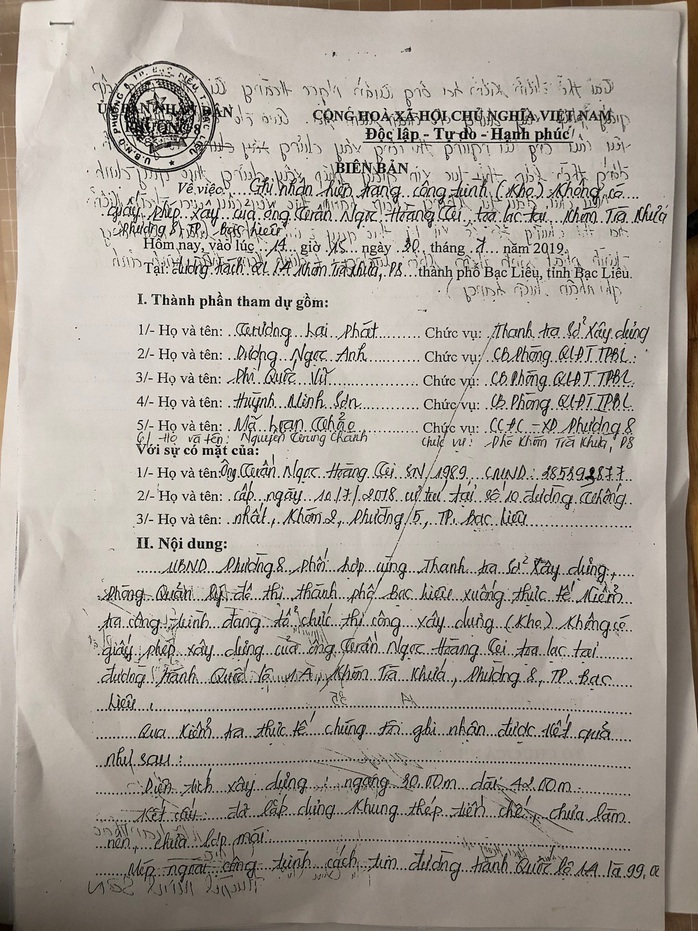 ỦY BAN NHÂN DÂN
PHƯỜNG 8
CỘNG HOÀ XÃ HỘI CHỦ NGHĨA VIỆT NAM
Độc lập - Tự do - Hạnh phúc
BIÊN BẢN
Về việc: Ghi nhận hiện trạng công trình (Kho) Không có
giấy phép xây của ông Trần Ngọc Hoàng Tới, tọa lạc tại Khóm Trà Khứa
phường 8, TP, Bạc Liêu
Hôm nay, vào lúc 14 giờ 15 ngày 30 tháng 7 năm 2019.
Tại: đường tránh QL 1A Khóm Trà Khứa, P8 thành phố Bạc Liêu, tỉnh Bạc Liêu.
I. Thành phần tham dự gồm:
1/- Họ và tên: Trương Lai Phát Chức vụ: Thanh tra Sở Xây dựng
2/- Họ và tên: Dương Ngọc Anh Chức vụ: CB Phòng QLĐT TPBL
3/- Họ và tên: Phi Quốc Vũ Chức vụ: CB Phòng QLĐT TPBL
4/- Họ và tên: Huỳnh Minh Sơn Chức vụ: CB Phòng QLĐT TPBL
5/- Họ và tên: Mã Thảo Chức vụ: CCĐC - XD Phường 8
6/ Họ và tên: Nguyễn Trung Chánh Chức vụ: Phó Khóm Trà Khứa, P8
Với sự có mặt của:
1/- Họ và tên: Ông Trần Ngọc Hoàng Tới SN/1989 CMND: 385392877
2/- Họ và tên: cấp ngày 10/7/2018 cư trú tại số 10 đường Thống
3/- Họ và tên: nhất, Khóm 2, Phường 5, TP. Bạc Liêu
II. Nội dung:
UBND Phường 8 phối hợp cùng Thanh tra Sở Xây dựng,
phòng Quản lý đô thị thành phố Bạc Liêu xuống thực tế Kiểm
tra công trình đang tổ chức thi công xây dựng (Kho) Không có
giấy phép xây dựng của ông Trần Ngọc Hoàng Tới tọa lạc tại
đường tránh Quốc lộ 1A, Khóm Trà Khứa, Phường 8, TP. Bạc
Liêu.
Qua Kiểm tra thực tế chúng tôi ghi nhận được Kết quả
như sau:
Diện tích xây dựng: ngang 30.00m dài 42.00m.
Kết cấu: đã lắp dựng Khung thép tiền chế, chưa làm
nền, chưa lợp mái.
Mép ngoài công trình cách tim đường tránh Quốc lộ 1A là 99,0